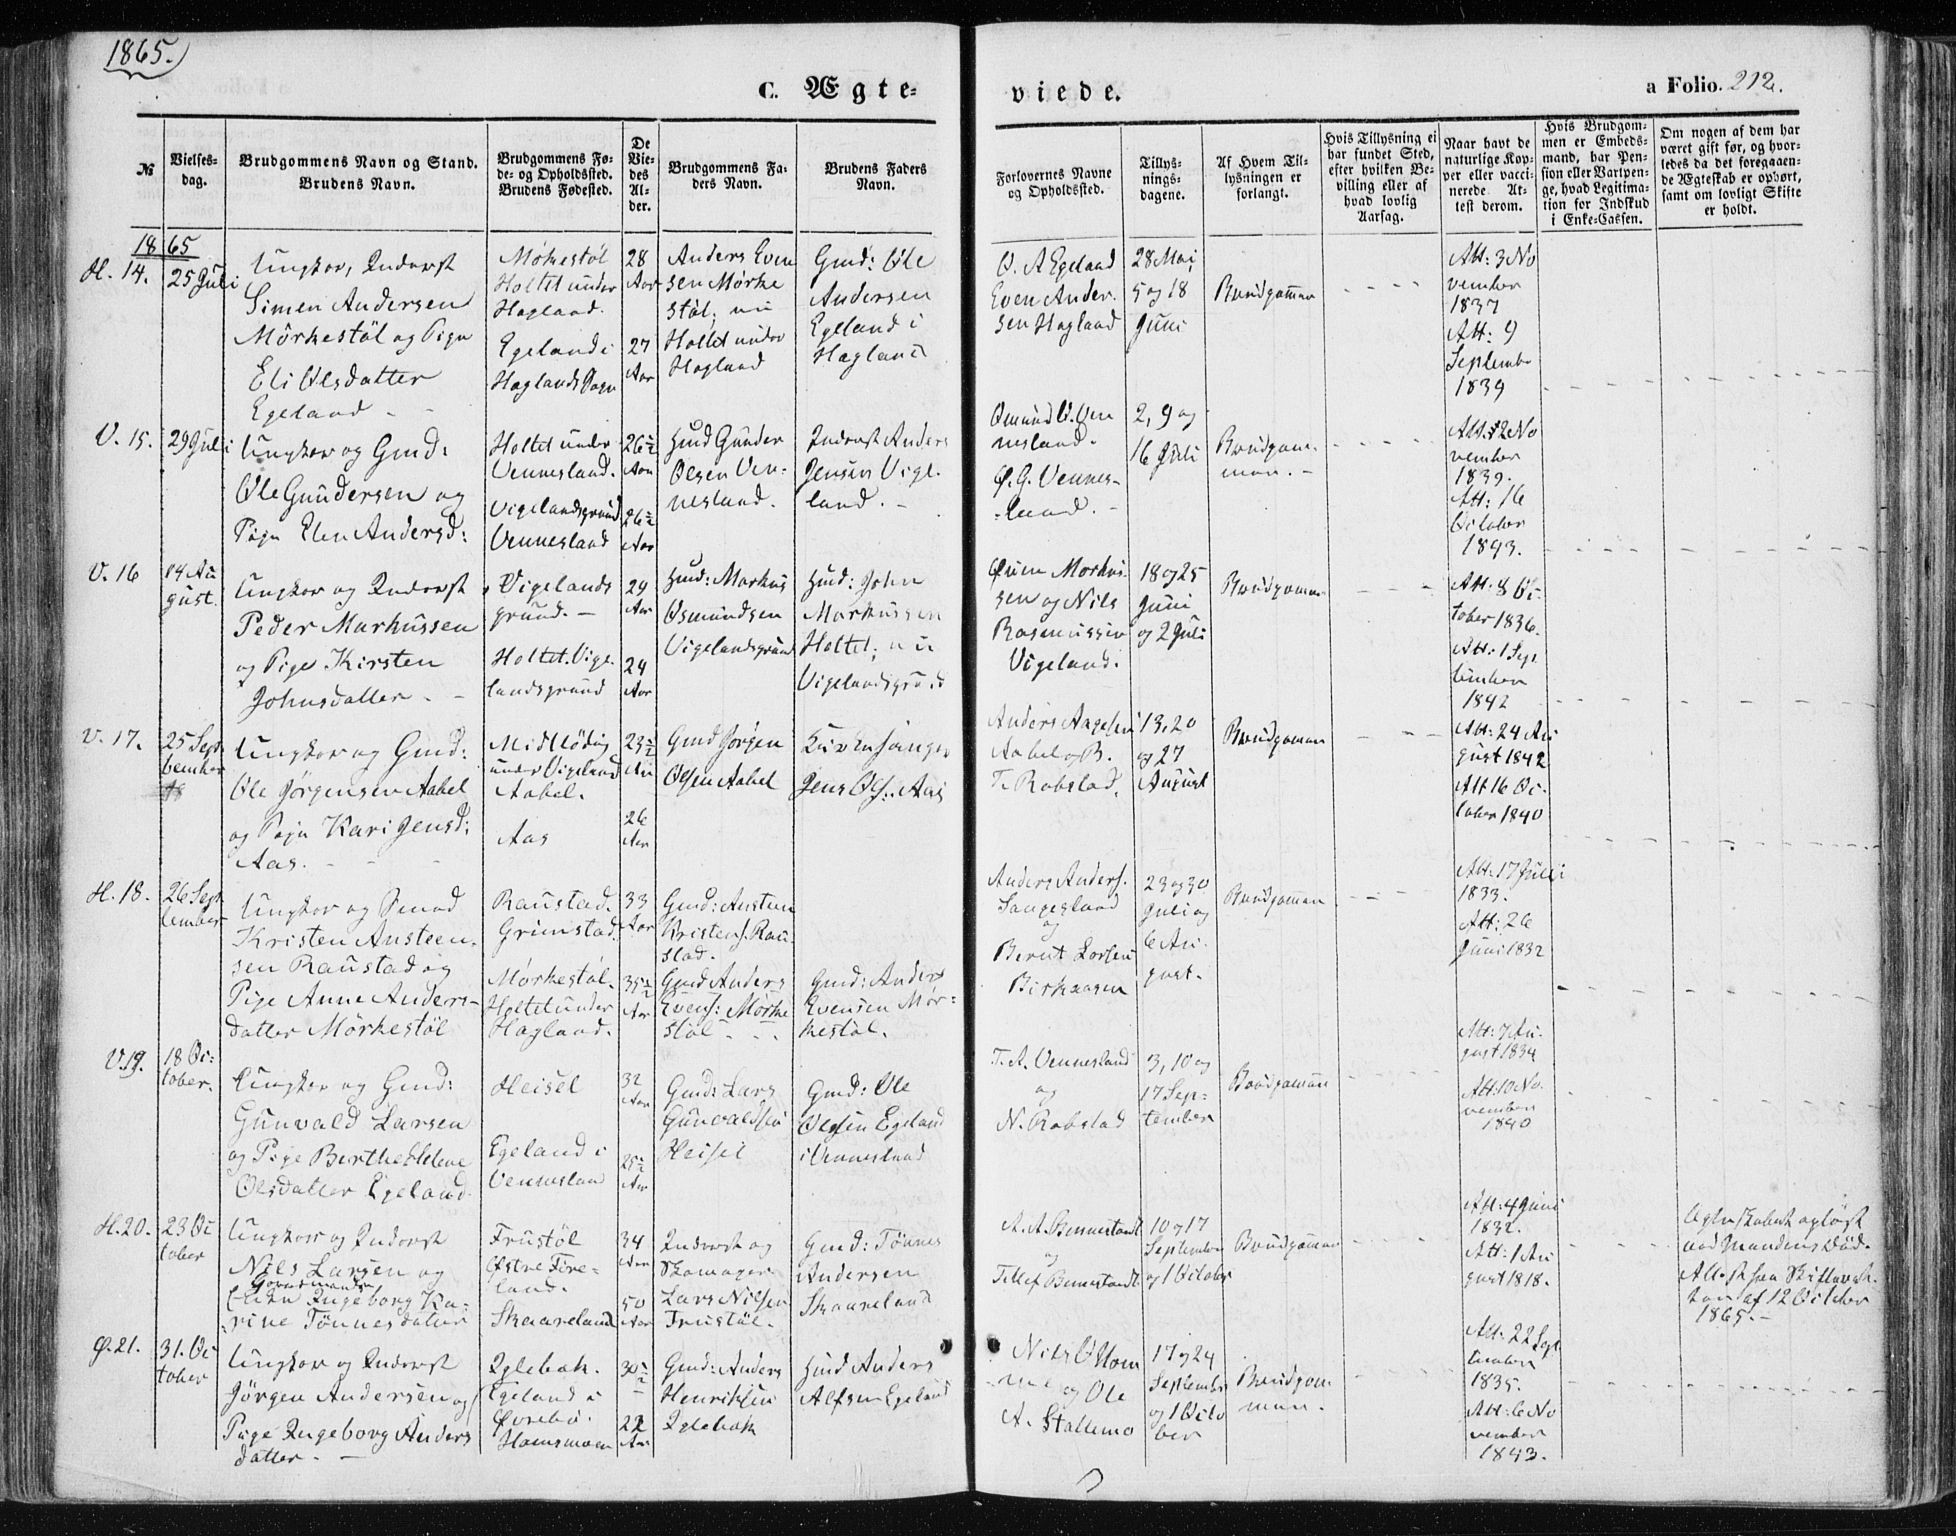 1865.
C. Ægte-
viede.
a Folio. 212.
№
Vielses-
dag.
Brudgommens Navn og Stand.
Brudens Navn.
Brudgommens Fø-
de- og Opholdssted.
Brudens Fødested.
De
Vie-
des
Al-
der.
Brudgommens Fa-
ders Navn.
Brudens Faders
Navn.
Forlovernes Navne
og Opholdssted.
Tillys-
nings-
dagene.
Af Hvem Til-
lysningen er
forlangt.
Hvis Tillysning ei
har fundet Sted,
efter hvilken Be-
villing eller af
hvad lovlig
Aarsag.
Naar havt de
naturlige Kop-
per eller vacci-
nerede At-
test derom.
Hvis Brudgom-
men er Embeds-
mand, har Pen-
sion eller Vartpen-
ge, hvad Legitima-
tion for Indskud
i Enke-Cassen.
Om nogen af dem har
været gift før, og hvor-
ledes da det foregaaen-
de Ægteskab er ophørt,
samt om lovligt Skifte
er holdt.
1865
H. 14.
25 Juli
Ungkar, Inderst
Simen Andersen
Mörkestöl og Pige
Eli Olsdatter
Egeland
Mörkestöl
Holtet under
Hagland.
Egeland i
Haglands Sogn
28
Aar
27
Aar
Anders Even
sen Mörke
stöl; nu
Holtet under
Hagland
Gmd: Ole
Andersen
Egeland i
Hagland
O. A Egeland
Even Ander-
sen Hagland
28 Mai
5 og 18
Juni
Brudgommen
Att: 3 No
vember
1837
Att: 9
Septembr
1839
V. 15.
29 Juli
Ungkar og Gmd:
Ole Gundersen og
Pige Elen Andersd:
Holtet under
Vennesland.
Vigelandsgrund
Vennesland
26½
Aar
26½
Aar
Husmd Gunder
Olsen Ven-
nesland.
Inderst Anders
Jensen Vige-
land.
Osmund O. Ven
nesland.
O. G. Vennes-
land.
2, 9 og
16 Juli
Brudgom-
men.
Att: 12 No
vember
1839.
Att: 16
October
1843.
V. 16
14 Au
gust.
Ungkar og Inderst
Peder Markussen
og Pige Kirsten
Johnsdatter
Vigelands
grund.
Holtet. Vige-
landsgrund
29
Aar
24
Aar
Husmd: Markus
Osmundsen
Vigelandsgrund
Husmd: John
Markussen
Holtet; nu
Vigelandsgrund
sen og Nils
Rasmussen
Vigeland.
18 og 25
Juni
og 2 Juli
Brudgommen
Att: 8 Oc-
tober 1836.
Att: 1 Sep
tember
1842
V. 17.
25 Sep
tember
Ungkar og Gmd:
Ole Jörgensen Aabel
og Pige Kari Jensd:
Aas.
under Vigeland
Aabel.
Aas
23½
Aar
26
Aar
Gmd Jörgen
Olsen Aabel
Kirkesanger
Jens Ols. Aas
Anders Aagesen
Aabel og B.
T. Robstad.
13, 20
og 27
August
Brudgommen
Att: 24 Au
gust 1842
Att 16 Oc-
tober 1840
H. 18.
26 Sep
tember
Ungkar og
Kristen Austeen-
sen Raustad og
Pige Anne Anders-
datter Mörkestöl
Raustad.
Grimstad.
Mörkestöl.
Holtet under
Hagland.
33
Aar
35½
Aar
Gmd: Austeen
Kristens. Rau-
stad.
Gmd Anders
Evens: Mörke
stöl
Gmd: Anders
Evensen Mör-
kestöl.
Anders Anders.
Sangesland
og
Bernt Larsen
Birkaasen
23 og 30
Juli og
6 Au-
gust.
Brudgommen
Att: 17 Juli
1833.
Att: 26
Juni 1832
V. 19.
18 Oc-
tober.
Ungkar og Gmd:
Gunvald Larsen
og Pige Berthe Helene
Olsdatter Egeland
Heisel
Egeland i
Vennesland
32
Aar
25½
Aar
Gmd: Lars
Gunvaldsen
Heisel
Gmd: Ole
Olsen Egeland
i Vennesland
T. A. Vennesland
og
N. Robstad
3, 10 og
17 Sep-
tember
Brudgommen
Att: 7 Au-
gust 1834
Att: 10 No-
vember
1840
H. 20.
23 Oc
tober
Ungkar og Inderst
Nils Larsen og
Enke Ingeborg Ka-
rine Tönnesdatter
Frustöl
Østre Fire-
land.
Skaareland
34
Aar
50
Aar
Inderst og
Skomager
Lars Nilsen
Frustöl.
Gmd: Tönnes
Andersen
Skaareland
A. A. Bennestadt
og
Tellef Bennestadt
10 og 17
September
og 1 October
Brudgommen
Att: 4 Juni
1832.
Att: 1 Au
gust 1818.
Ægteskabet oplöst
ved Mandens Död.
Attest fra Skifteret-
ten af 12 October
1865.
Ø. 21.
31. Oc
tober
Ungkar og Inderst
Jörgen Andersen og
Pige Ingeborg Anders
datter.
Iglebæk.
Egeland i
Øvrebö.
Homsmoen
30½
22
Aar
Gmd: Anders
Henriksen
Iglebæk
Husmd Anders
Alfsen Egeland
Nils O Hom
me og Ole
A. Stallemo
17 og 24
September
og 1 Octo
ber
Brudgom
men.
Att: 22 Sept
tember
1835.
Att: 6 No
vember
1843.